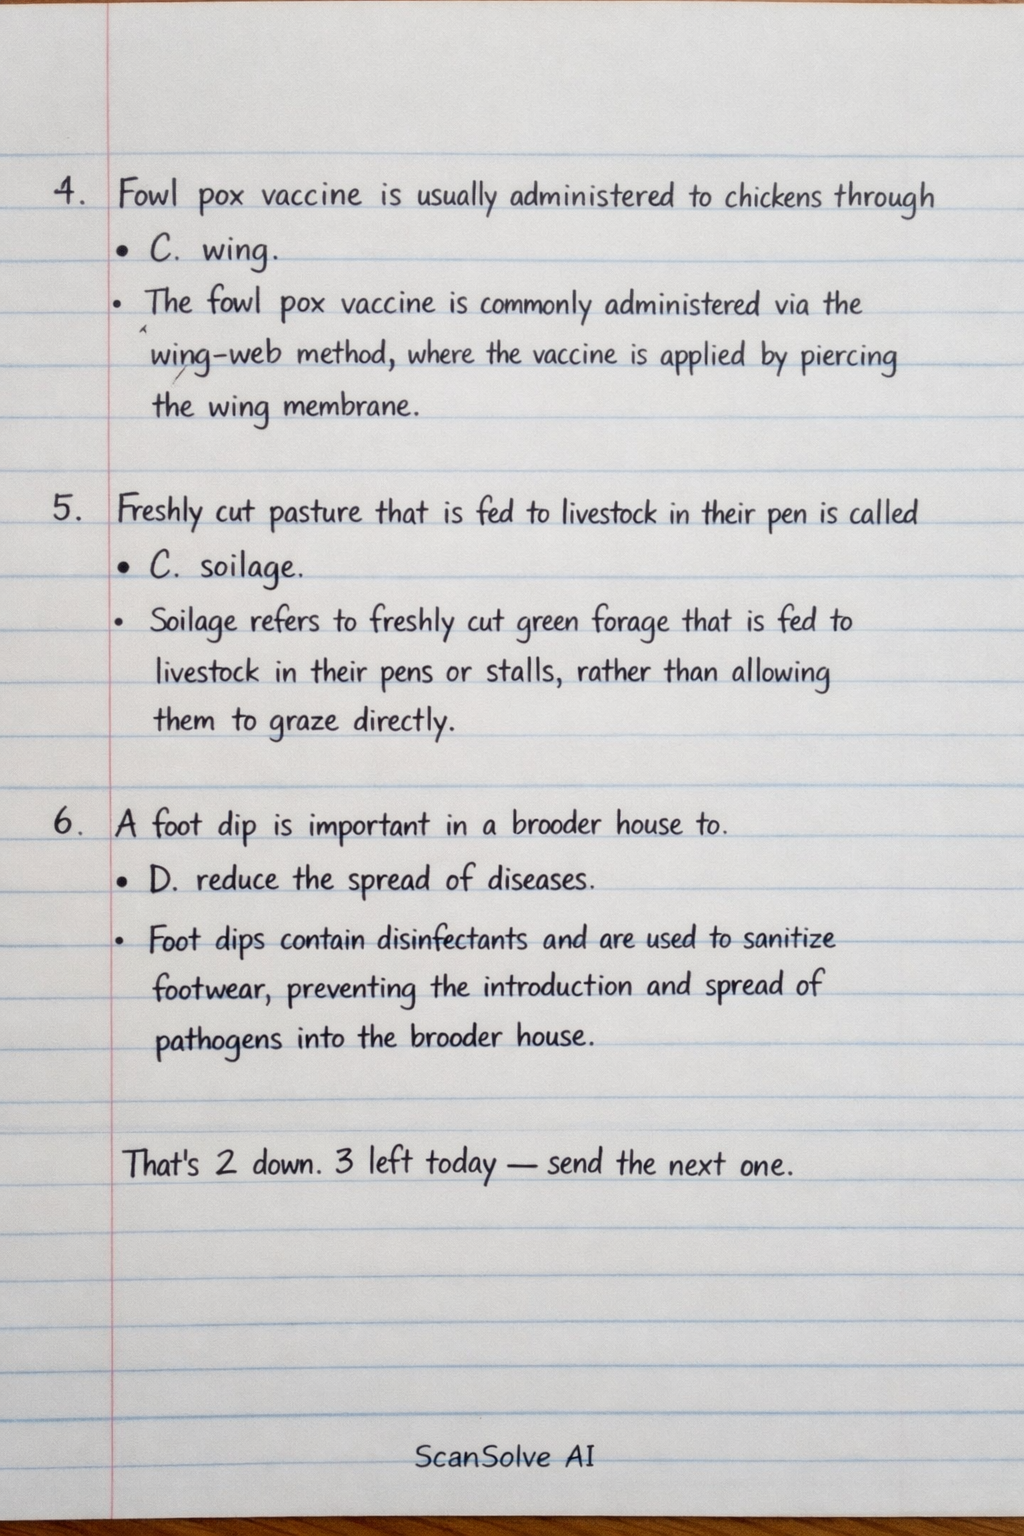 4. Fowl pox vaccine is usually administered to chickens through
• C. wing.
• The fowl pox vaccine is commonly administered via the
wing-web method, where the vaccine is applied by piercing
the wing membrane.
5. Freshly cut pasture that is fed to livestock in their pen is called
• C. soilage.
• Soilage refers to freshly cut green forage that is fed to
livestock in their pens or stalls, rather than allowing
them to graze directly.
6. A foot dip is important in a brooder house to.
• D. reduce the spread of diseases.
• Foot dips contain disinfectants and are used to sanitize
footwear, preventing the introduction and spread of
pathogens into the brooder house.
That's 2 down. 3 left today — send the next one.
ScanSolve AI